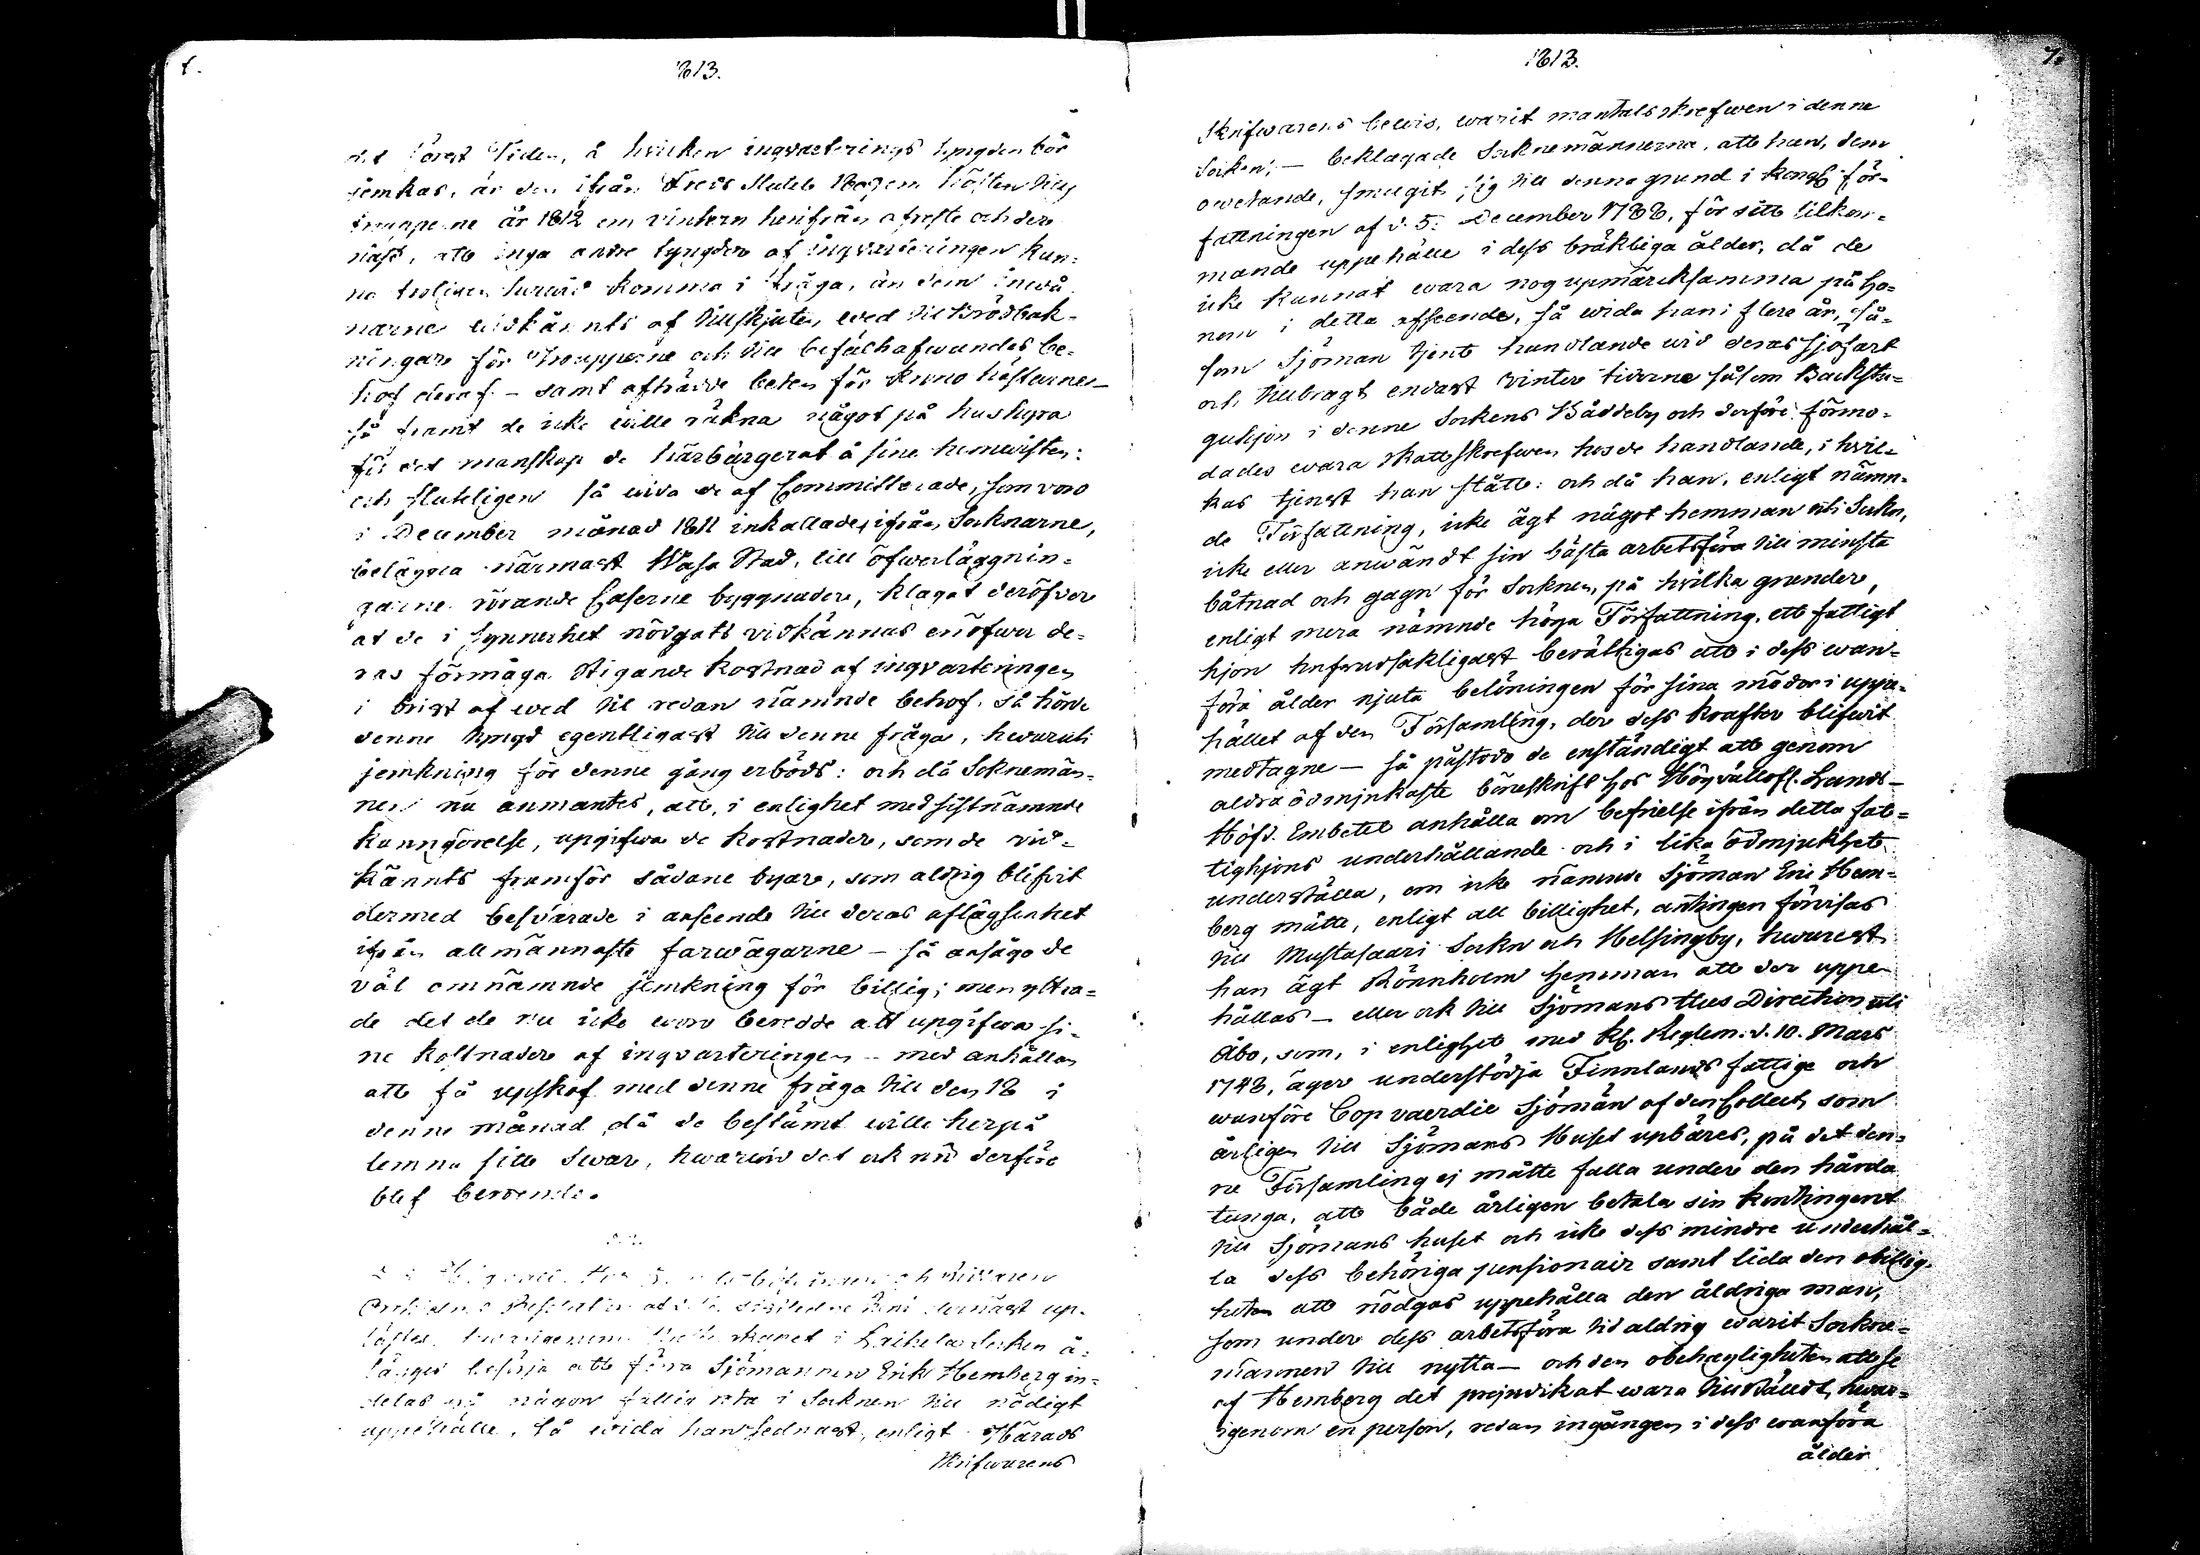 1813.
det först Tiden, å hvilken inqvarterings tyngden bör
jemkas, är den ifrån Freds slutet 1809 om hösten till
trupperne år 1812 om vintern herifrån afreste och der
näst, att inga andre tyngder af inqvarteringen kun-
na troligen komma i fråga, än dem invå
narne vidkännts af tillskjuten, wed till Brödbak-
ningar för Troupperne och till befälhafwandes be-
hof deraf – samt afträdde beten för Krono hästarne –
så framt de icke wille räkna något på hushyra
för det manskap de härbärgerat å sine hemwisten:
och sluteligen så wida de af Committerade, som voro
i December månad 1811 inkallade ifrån Soknarne,
belägna närmast Wasa Stad, till öfwerläggnin-
garne rörande Caserne byggnader, klagat deröfver
at de i synnerhet nödgats vidkännas en öfwer de-
ras förmåga stigande kostnad af inqvarteringen
i brist af wed til redan nämnde behof, så hörde
denne tyngd egentligast till denne fråga, hvaruti
jemkning för denne gång erböds: och då Soknemän-
nen nu anmantes, att, i enlighet med sistnämnde
kunngörelse, upgifwa de kostnader, som de vid-
kännts framför sådane byar, som aldrig blifvit
dermed besvärade i anseende till deras aflägsenhet
ifrån allmännaste farwägarne – så ansågo de
väl omnämnde jemkning för billig; men yttra-
de det de nu icke woro beredde att upgifwa si-
ne kostnader af inqvarteringen – med anhållan
att få upskof med denne fråga till den 18 i
denne månad då de bestämt wille herpå
lemna sitt swar, hwarwid det ock nu derföre
blef beroende.
länges befinja att förra Sjömannen Erik Hemberg in-
delas på någon fattig rota i Soknen till nödigt
uppehälle, så wida han sednast, enligt Härads
Skrifwarens
1813.
7.
Skrifwarens bewis, warit mantalsskrefwen i denne
Soken; – beklagade Soknemännerne, att han, dem
owetande, smugit sig till denne grund i Kongl. för-
fattningen af d. 5. December 1788, för sitt tilkom-
mande uppehälle i dess bräkliga ålder, då de
icke kunnat wara nog upmärksamma på ho-
nom i detta afseende, så wida han i flere år, så-
som Sjöman tjent handlande wid deras sjöfart
och tillbragt endast winter tiderne såsom Backstu-
guhjon i denne Sokens Båddeby och derföre förmo-
dades wara skattskrefwen hos de handlande, i hvil-
kas tjenst han stått: och då han, enligt nämn-
de Författning, icke ägt något hemman uti Sokn,
icke eller anwändt sin bästa arbetsföra till minsta
båtnad och gagn för Soknen, på hvilka grunder,
enligt mera nämnde höga Författning, ett fattigt
hjon hufwudsakligast berättigas att i dess wan-
föra ålder njuta belöningen för sina mödor i uppe-
hället af den Församling, der dess krafter blifwit
medtagne – så påstodo de enständigt att genom
aldra ödmjukaste böneskrift hos Högvällofl. Lands-
Höfd. Embetet anhålla om befrielse ifrån detta fat-
tighjons underhållande och i lika ödmjukhet
underställa, om icke nämnde Sjöman Eric Hem-
berg måtte, enligt all billighet, antingen förvisas
till Mustasaari Sokn och Helsingby, hwarest
han ägt Rönnholm Hemman att der uppe-
hållas – eller ock till Sjömans Hus Direction uti
Åbo, som, i enlighet med Kl. Reglem: d. 10. Mars
1748, äger understödja Finnlands fattige och
wanföre Copvaerdie Sjömän af den Collect, som
årligen till Sjömans Huset upbäres, på det den-
ne Församling ej måtte falla under den hårda
tunga, att både årligen betala sin kontingent
till Sjömans huset och icke dess mindre underhål-
la dess behöriga pensionair samt lida den obillig-
heten att nödgas uppehålla den åldriga man,
som under dess arbetsföra tid aldrig warit Sokne-
männen till nytta – och den obehaglighten att se
af Hemberg det prejudikat wara tillstäldt, hwar-
igenom en person, redan ingången i dess wanföra
ålder